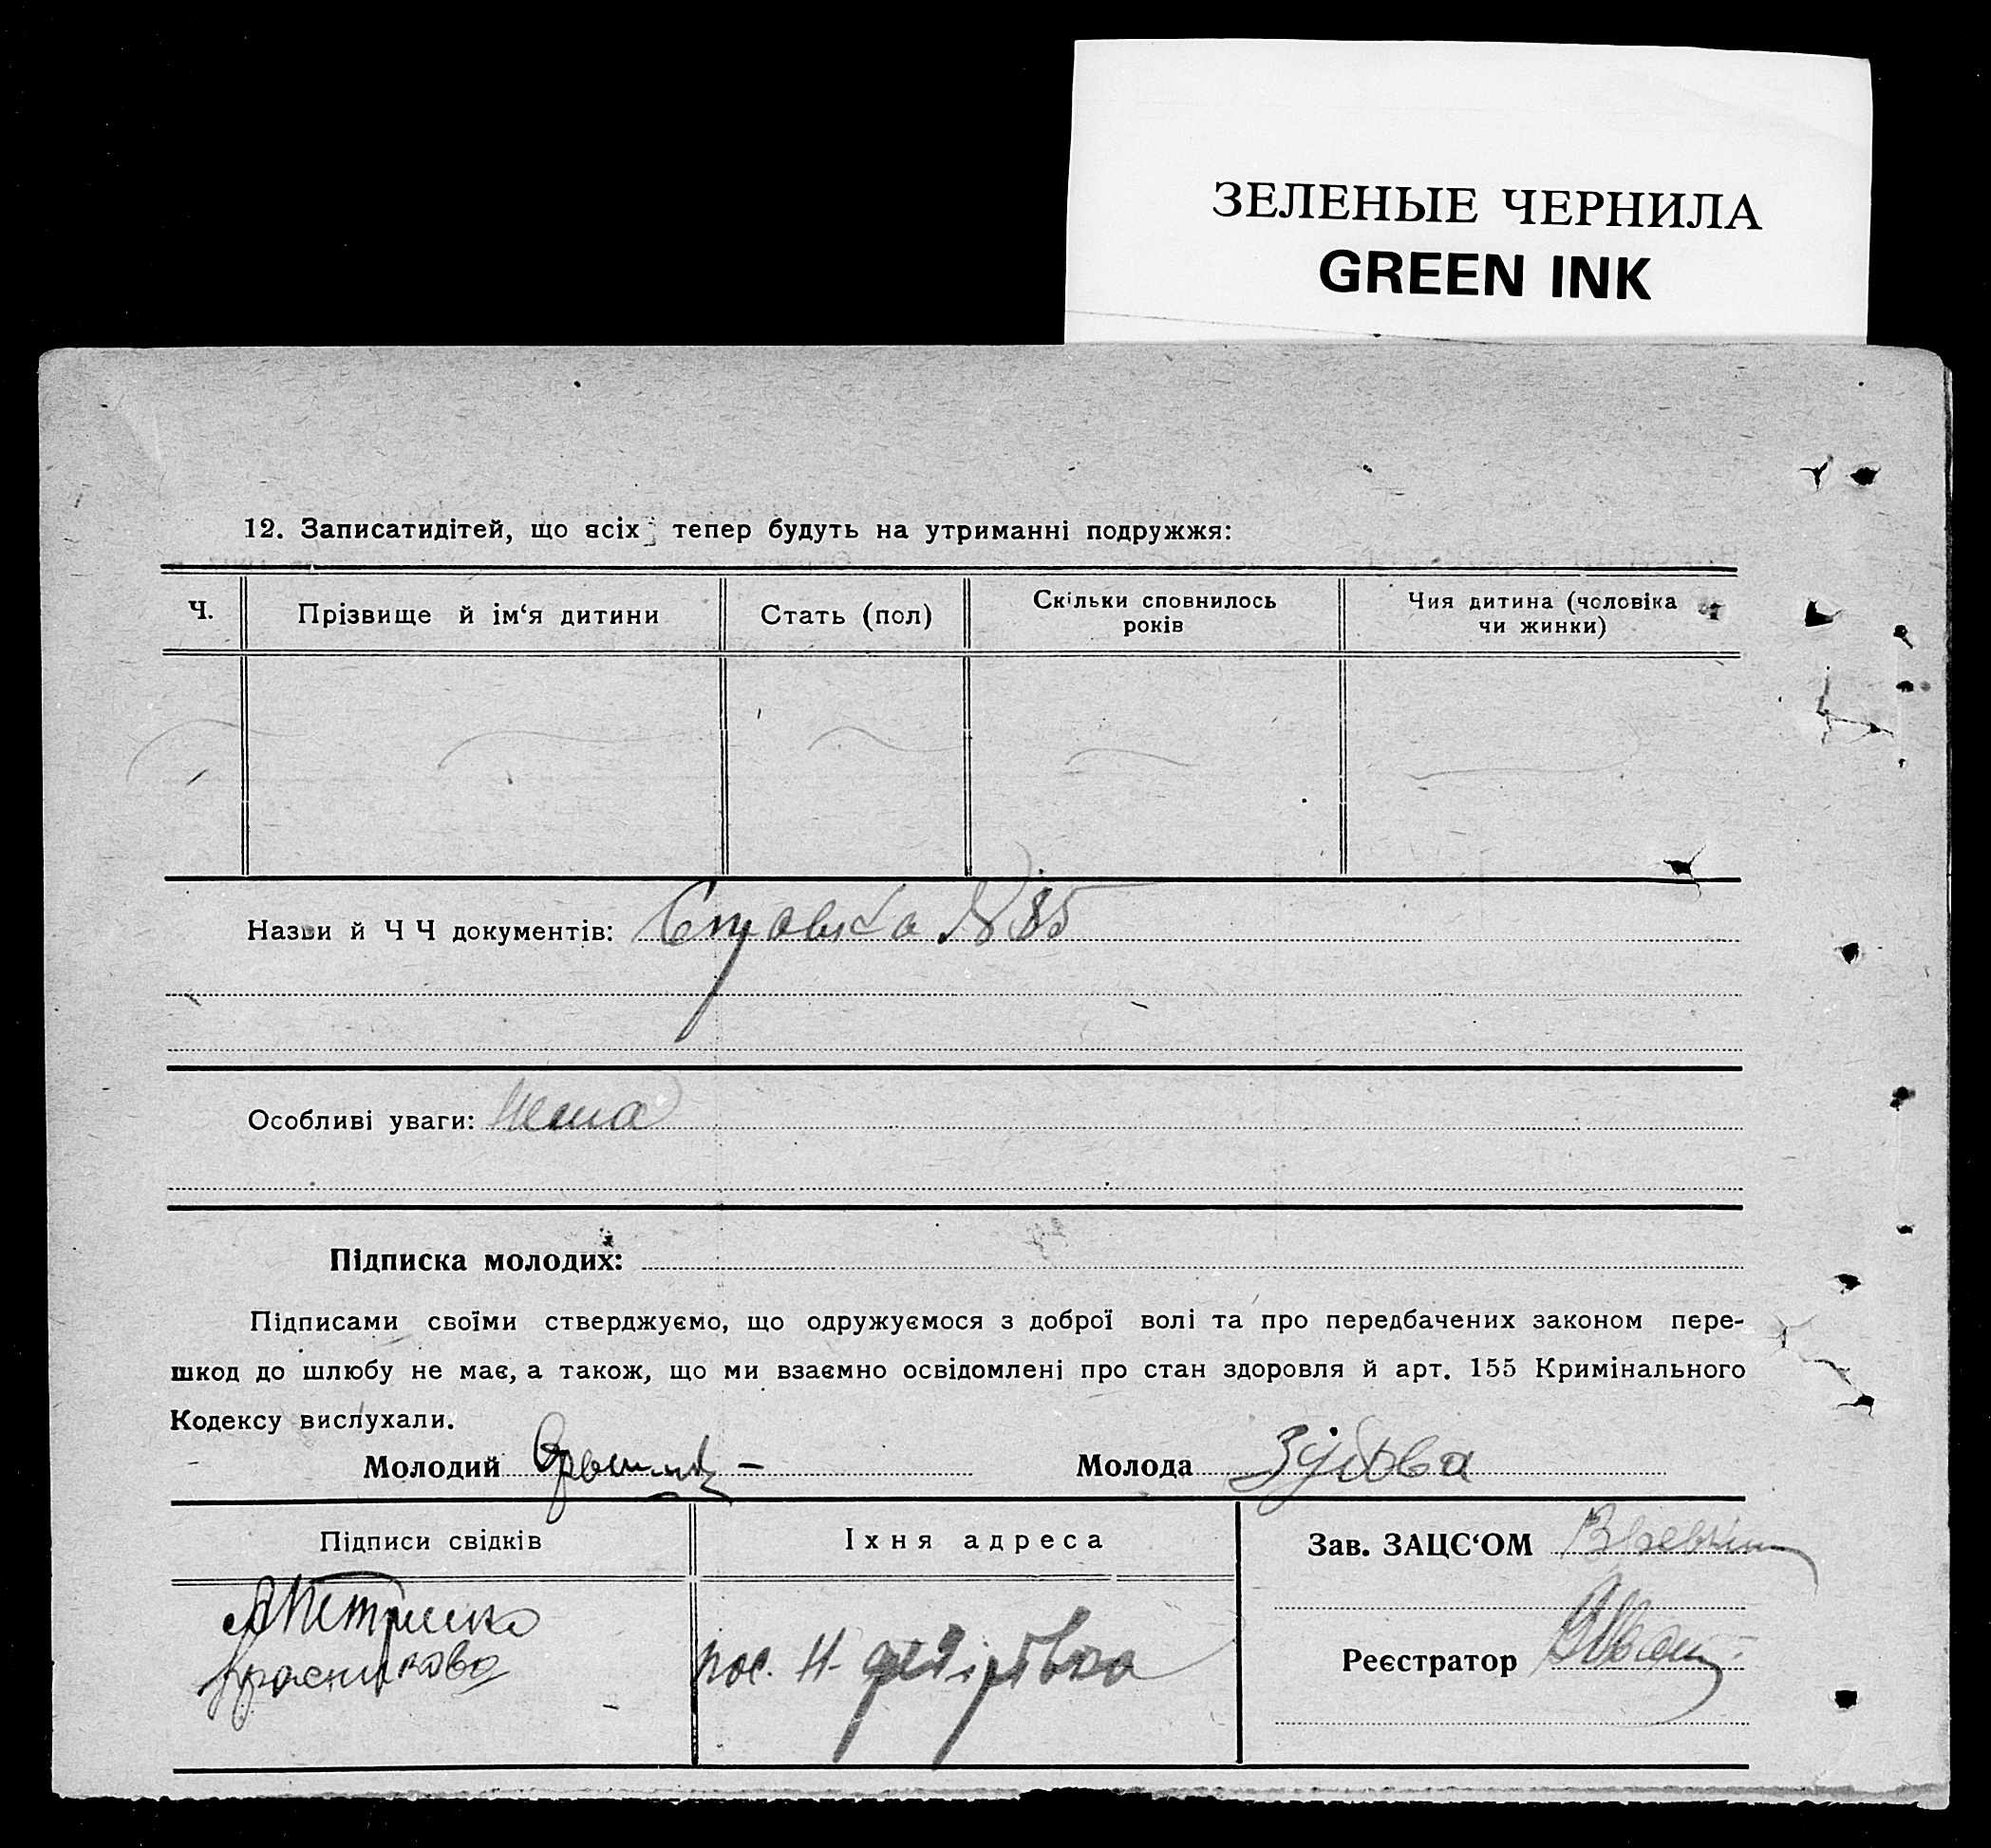 ЗЕЛЕНЫЕ ЧЕРНИЛА
GREEN INK
12. Записатидітей, що всіх тепер будуть на утриманні подружжя:
Ч.
Прізвище й ім‘я дитини
Стать (пол)
Скільки сповнилось
років
Чия дитина (чоловіка
чи жинки)
Назви й Ч Ч документів: Справка № 85
Особливі уваги: Нема
Підписка молодих:
Підписами своїми стверджуємо, що одружуємося з доброї волі та про передбачених законом пере-
шкод до шлюбу не має, а також, що ми взаємно освідомлені про стан здоровля й арт. 155 Кримінального
Кодексу вислухали.
Молодий
Молода Зубова
Підписи свідків
Їхня адреса
Зав. ЗАЦС‘ОМ
Красникова
пос. Н-
Реєстратор